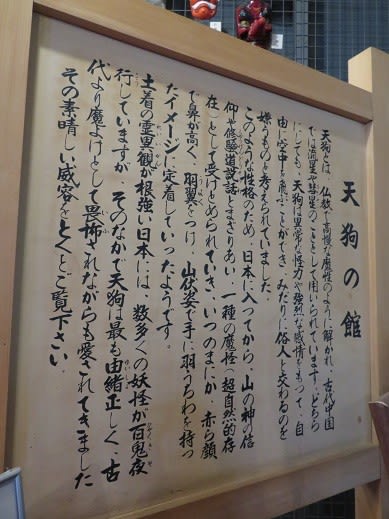 天狗の館
天狗とは、仏教で高慢な魔性のように解かれ、古代中国
では流星や彗星のこととして用いられています。どちら
にしても、天狗は異常な怪力や強烈な感情をもって、自
由に空中を飛ぶことができ、みだりに俗人と交わるのを
嫌うものと考えられていました。
このような性格のため、日本に入ってから、山の神の信
仰や修験道説話とまざりあい、一種の魔怪(超自然的存
在)として受けとめられていき、いつのまにか、赤ら顔
で鼻が高く、羽翼をつけ、山伏姿で手に羽うちわを持っ
たイメージに定着していったようです。
土着の霊異観が根強い日本には、数多くの妖怪が百鬼夜
行していますが、そのなかで天狗は最も由緒正しく、古
代より魔よけとして畏怖されながらも愛されてきました
その素晴しい威容をとくとご覧下さい。